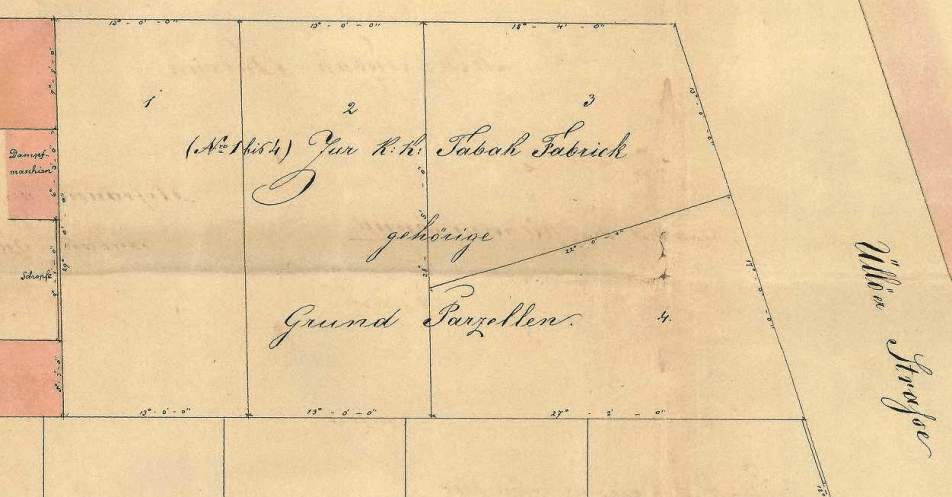 15° - 0' - 0"
15° - 0' - 0"
18° - 4' - 0"
1
2
3
Dampf
maschien
(Nro 1 bis 4) Zur K: K: Tabak Fabrick
gehörige
22° - 0' - 0"
Schopfe
Grund Parzellen.
4.
Üllöer Straſse
15° - 0' - 0"
15° - 0' - 0"
27° - 2' - 0"